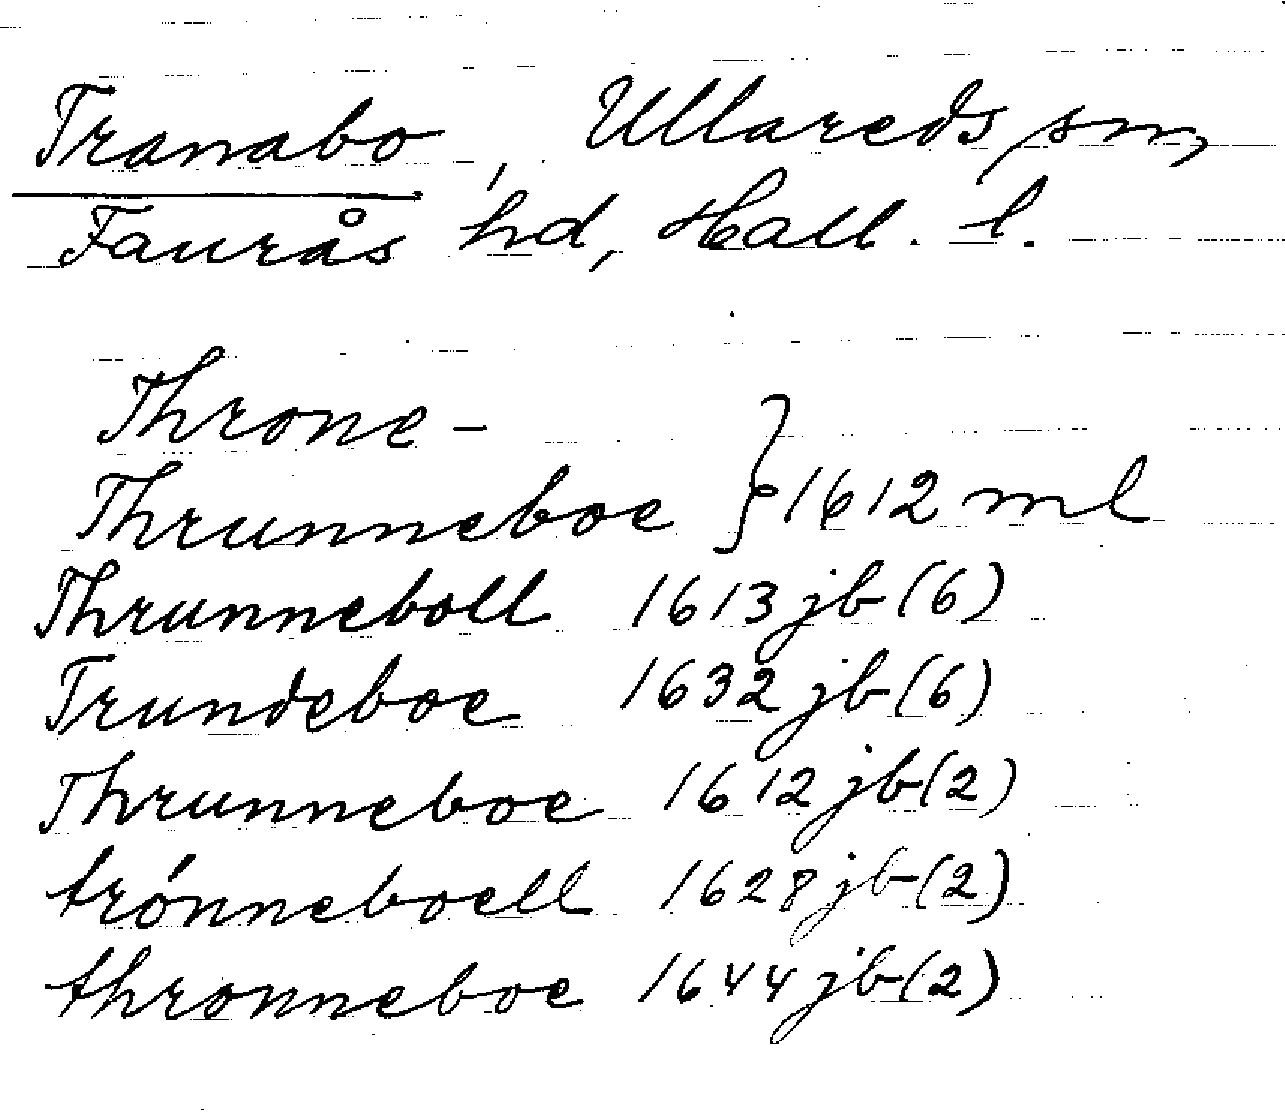 Tranabo, Ullareds sn,
Faurås hd, Hall. l.
Throne-
Thrunneboe } 1612 ml
Thrunneboll 1613 jb (6)
Trundeboe 1632 jb (6)
Thrunneboe 1612 jb (2)
trónneboell 1628 jb (2)
thronneboe 1644 jb (2)